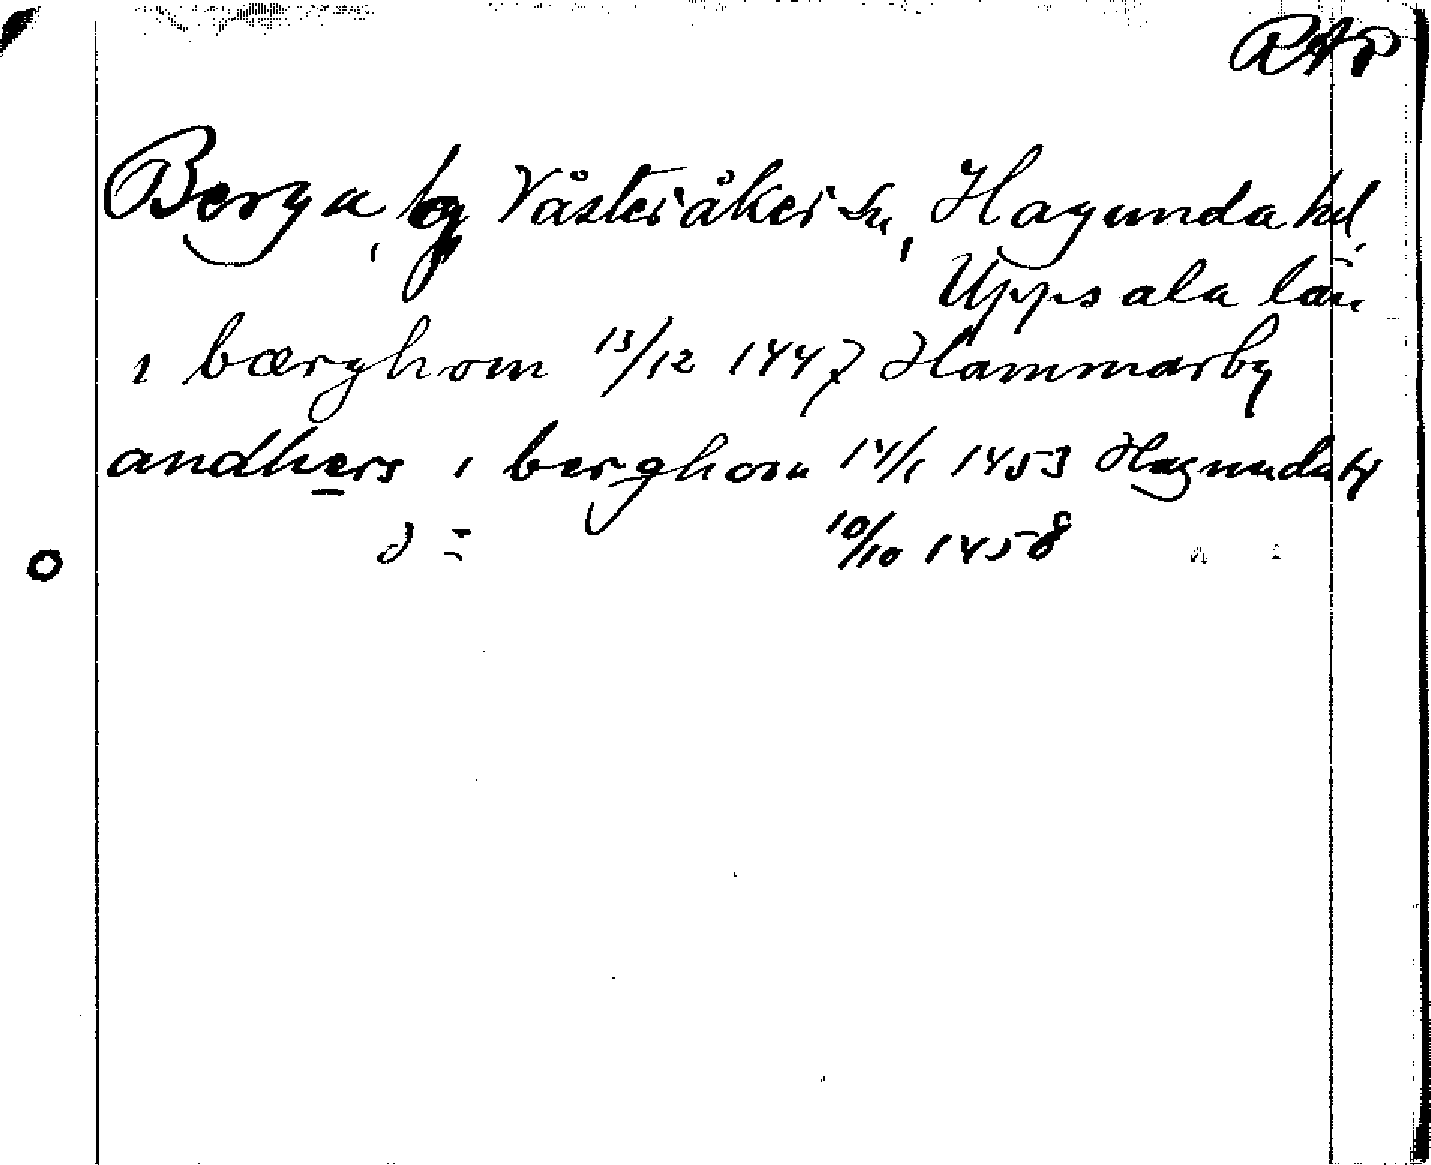 RAP
Berga, by Västeråker sn, Hagunda hd,
Uppsala län
i bærghom 13/12 1447 Hammarby
andhers i berghom 14/1 1453 Hagunda
d =
10/10 1458